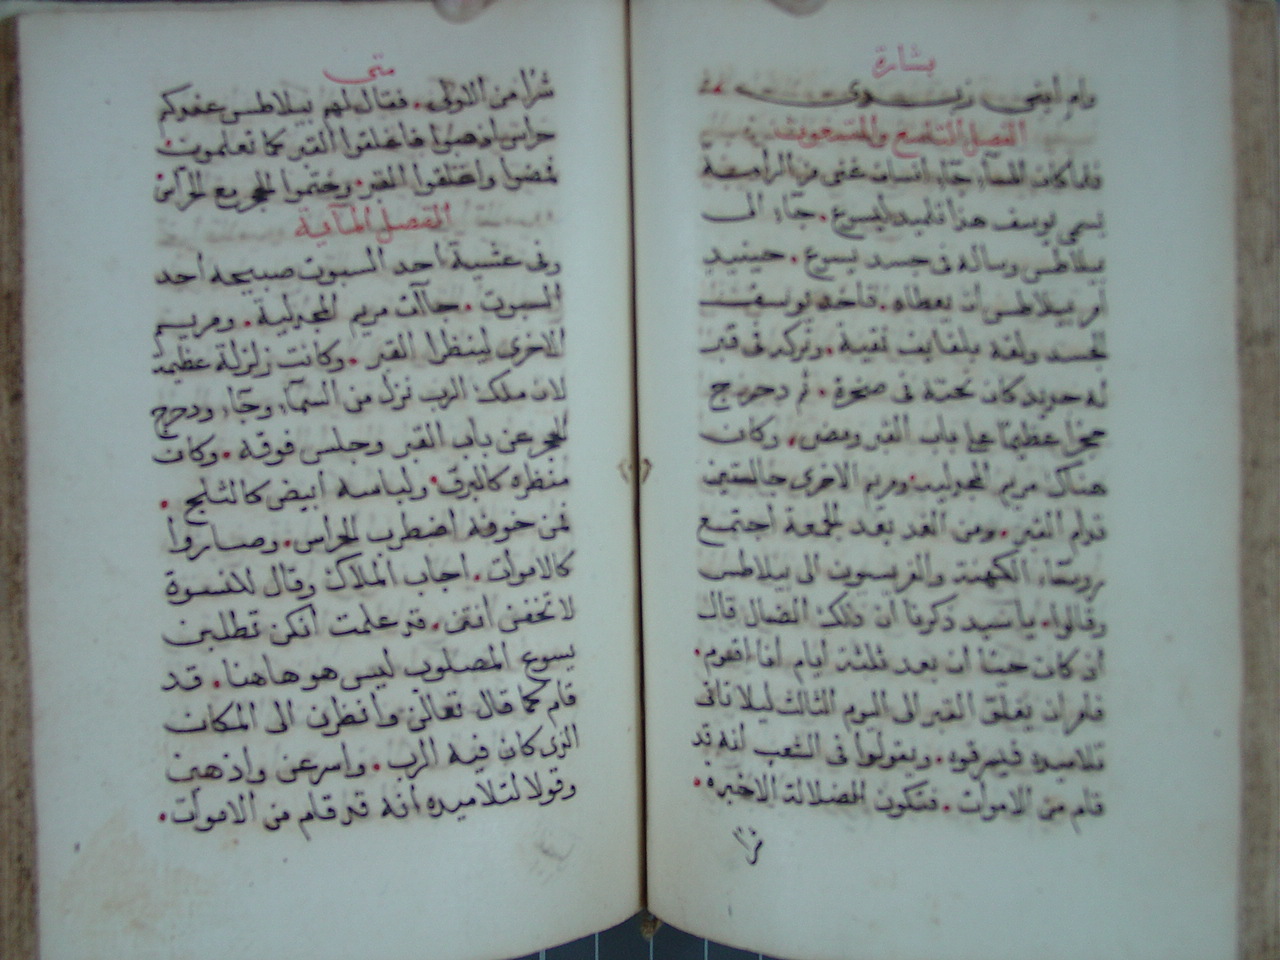 بشارة
وام ابني زبدى
الفصل التاسع والتسعون
فلما كان المسآء جآء انسان غنى من الرامة
يسمى يوسف هذا تلميذ ليسوع. جآء الى
بيلاطس وساله فى جسد يسوع. حينيد
امر بيلاطس ان يعطاه. فاخد يوسف
الجسد ولفه بلفايف نقية. وتركه فى قبر
له جديد كان نحته فى صخرة. ثم دحرج
حجرا عظيما على باب القبر ومضى. وكان
هناك مريم المجدلية ومريم الاخرى جالستين
قدام القبر. ومن الغد بعد الجمعة اجتمع
روسآء الكهنة والفريسيون الى بيلاطس
وقالوا. يا سيد ذكرنا ان ذلك الضال قال
اذ كان حيا ان بعد ثلثة ايام انا اقوم.
فامر ان يغلق القبر الى اليوم الثالث ليلا تاتى
تلاميده فيسرقوه. ويقولوا فى الشعب انه قد
قام من الاموات. فتكون الضلالة الاخيره.
شرا
متى
شرا من الاولى. فقال لهم بيلاطس عندكم
حراس اذهبوا فاغلقوا القبر كما تعلموت
فمضوا واغلقوا القبر. وختموا الحجر مع الحراس
الفصل المآية
وفى عشية احد السبوت صبيحه احد
السبوت. جاآت مريم المجدلية. ومريم
الاخرى لينظرا القبر. وكانت زلزلة عظيمة
لان ملك الرب نزل من السمآء وجآء ودحرج
الحجر عن باب القبر وجلس فوقه. وكان
منظره كالبرق. ولباسه ابيض كالثلج.
فمن خوفه اضطرب الحراس. وصاروا
كالاموات. اجاب الملاك وقال للنسوة
لا تخفن انتن. قد علمت انكن تطلبن
يسوع المصلوب ليس هو هاهنا. قد
قام كما قال تعالن وانظرن الى المكان
الذى كان فيه الرب. واسرعن واذهبن
وقولا لتلاميده انه قد قام من الاموات.